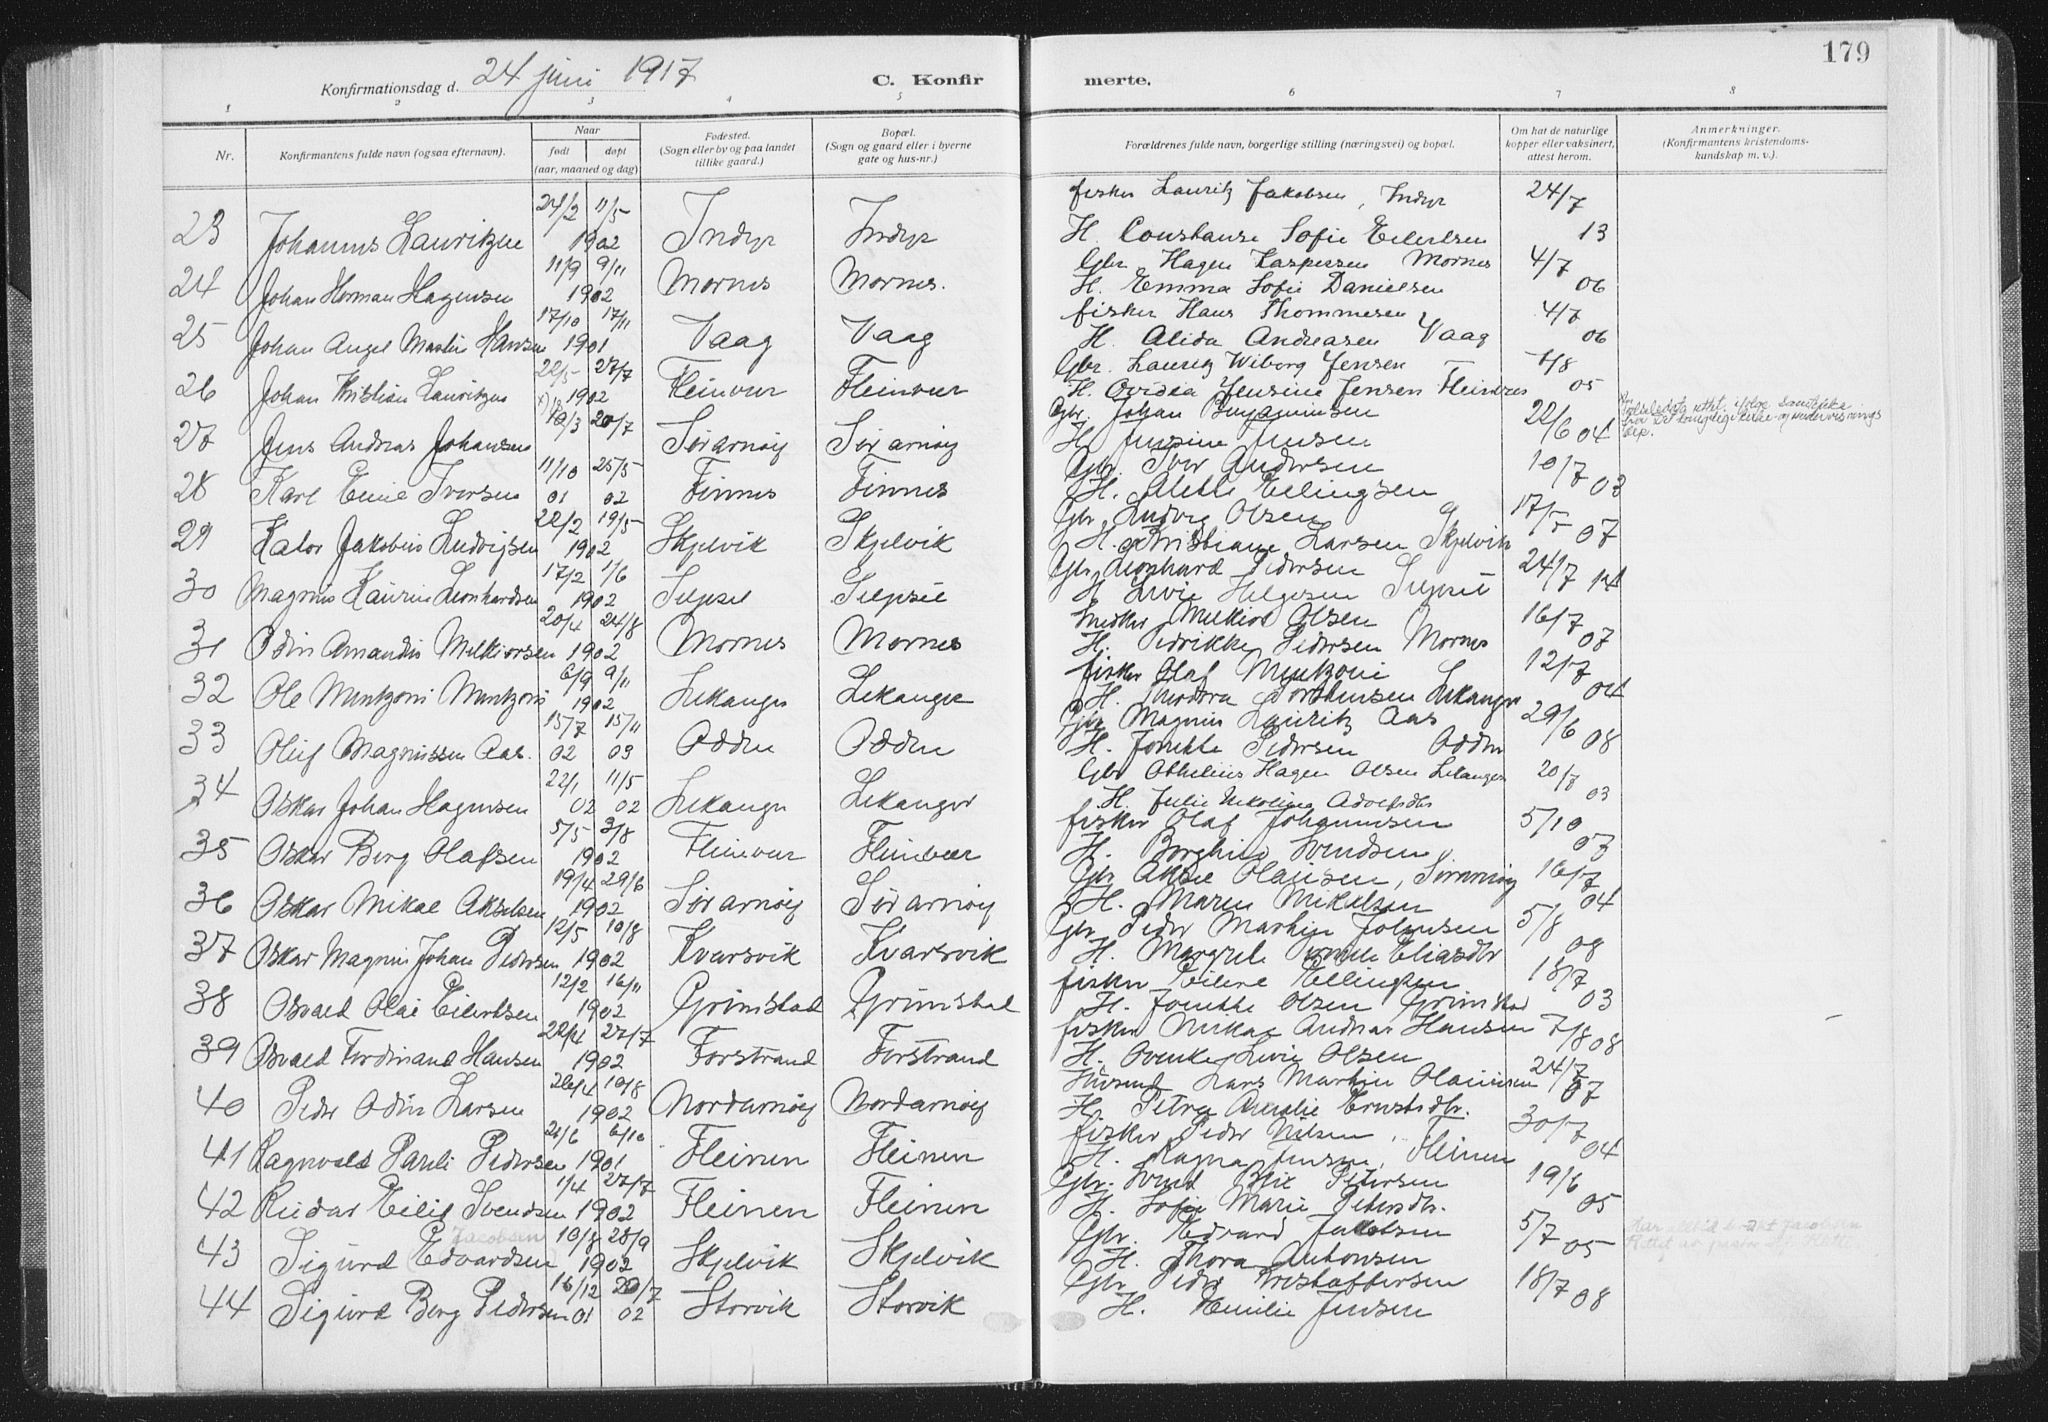 179
Konfirmationsdag d. 24 juni 1917
C. Konfir merte.
1 2 3 4 5 6 7 8
Nr.
Konfirmantens fulde navn (ogsaa efternavn).
Naar
født døpt
(aar, maaned og dag)
Fødested.
(Sogn eller by og paa landet
tillike gaard.)
Bopæl.
(Sogn og gaard eller i byerne
gate og hus-nr.)
Forældrenes fulde navn, borgerlige stilling (næringsvei) og bopæl.
Om hat de naturlige
kopper eller vaksinert,
attest herom.
Anmerkninger.
(Konfirmantens kristendoms-
kundskap m. v.).
24/2 11/5 fisker Lauritz Jakobsen, Indyr 24/7
23 Johannes Lauritzen 1902 Indyr Indyr H. Constanse Sofie Eilertsen 13
11/9 9/11 Gbr Hagen Kaspersen Mornes 4/7
24 Johan Herman Hagensen 1902 Mornes Mornes. H. Emma Sofie Danielsen 06
17/10 17/11 fisker Hans Thommesen 4/7
25 Johan Angel Martin Hansen 1901 Vaag Vaag H. Alida Andreasen Vaag 06
22/5 27/7 Gbr. Lauritz Wiborg Jensen 7/8
26 Johan Kristian Lauritzen 1902 Fleinvær Fleinvær H. Ovidea Jensine Jensen Fleinvær 05
19/3 20/7 Gbr. Johan Benjaminsen 22/6
27 Jens Andreas Johansen Sørarnøy Sørarnøy H. Jensine Jensen 04
11/10 25/5 Gbr. Iver Andersen 10/7
28 Karl Emil Iversen 01 02 Finnes Finnes H. Alette Ellingsen 03
22/2 19/5 Gbr. Ludvig Olsen 17/5
29 Kator Jakobus Ludvigsen 1902 Skjelvik Skjelvik H. Kristiane Larsen Skjelvik 07
17/2 1/6 Gbr. Leonhard Pedersen 24/7
30 Magnus Laurius Leonhardsen 1902 H. Livie Helgesen 14
20/4 24/8 Snedker Melkior Olsen 16/7
31 Odin Amandus Melkiorsen 1902 Mornes Mornes H. Fredrikke Pedersen Mornes 07
6/9 9/11 fisker Olaf Mentzoni 12/7
32 Ole Mentzoni Mentzoni 1902 Lekanger Lekanger H. Theodora Torstensen Lekanger 04
15/7 15/11 Gbr Magnus Lauritz Aas 29/6
33 Oluf Magnussen Aas. 02 03 Odden Odden H. Jonette Pedersen Odden 08
22/1 11/5 Gbr Othelius Hagen Olsen Lekanger 20/7
34 Oskar Johan Hagensen 02 02 Lekanger Lekanger H. Julie Nikoline Adolfsdtr 03
5/5 3/8 fisker Olaf Johannesen 5/10
35 Oskar Berg Olafsen 1902 Fleinvær Fleinvær H. Borghild Svendsen 03
19/4 29/6 Gbr Aksel Olaisen, Sørarnøy 16/7
36 Oskar Mikal Akselsen 1902 Sørarnøy Sørarnøy H. Maren Mikalsen 04
12/5 10/8 Gbr Peder Martin Johnsen 5/8
37 Oskar Magnus Johan Pedersen 1902 Kvarsvik Kvarsvik H. Margrete Eliasdtr 08
12/2 16/11 fisker Eilert Ellingsen 18/7
38 Osvald Olai Eilertsen 1902 Grimstad Grimstad H. Jonette Olsen Grimstad 03
22/4 27/7 fisker Mikal Andreas Hansen 7/8
39 Osvald Ferdinand Hansen 1902 Forstrand Forstrand H. Ovenke Livie Olsen 08
26/4 10/8 Husmand Lars Martin Olaussen 24/7
40 Peder Odin Larsen 1902 Nordarnøy Nordarnøy H. Petra Amalie Ernstsdtr. 07
21/6 6/10 fisker Peder Nilsen, 30/7
41 Ragnvald Pareli Pedersen 1901 Fleinen Fleinen H. Ragna Jensen, Fleinen 04
1/4 27/7 Gbr. Svend Petersen 19/6
42 Reidar Eilif Svendsen 1902 Fleinen Fleinen H. Sofie Marie Petersdtr. 05
Jacobsen 10/8 28/9 Gbr. Edvard Jakobsen 5/7
43 Sigurd Edvardsen 1902 Skjelvik Skjelvik H. Thora Antonsen 05
16/12 20/7 Gbr Peder Kristoffersen 18/7
44 Sigurd Berg Pedersen 01 02 Storvik Storvik H. Emilie Jensen 08